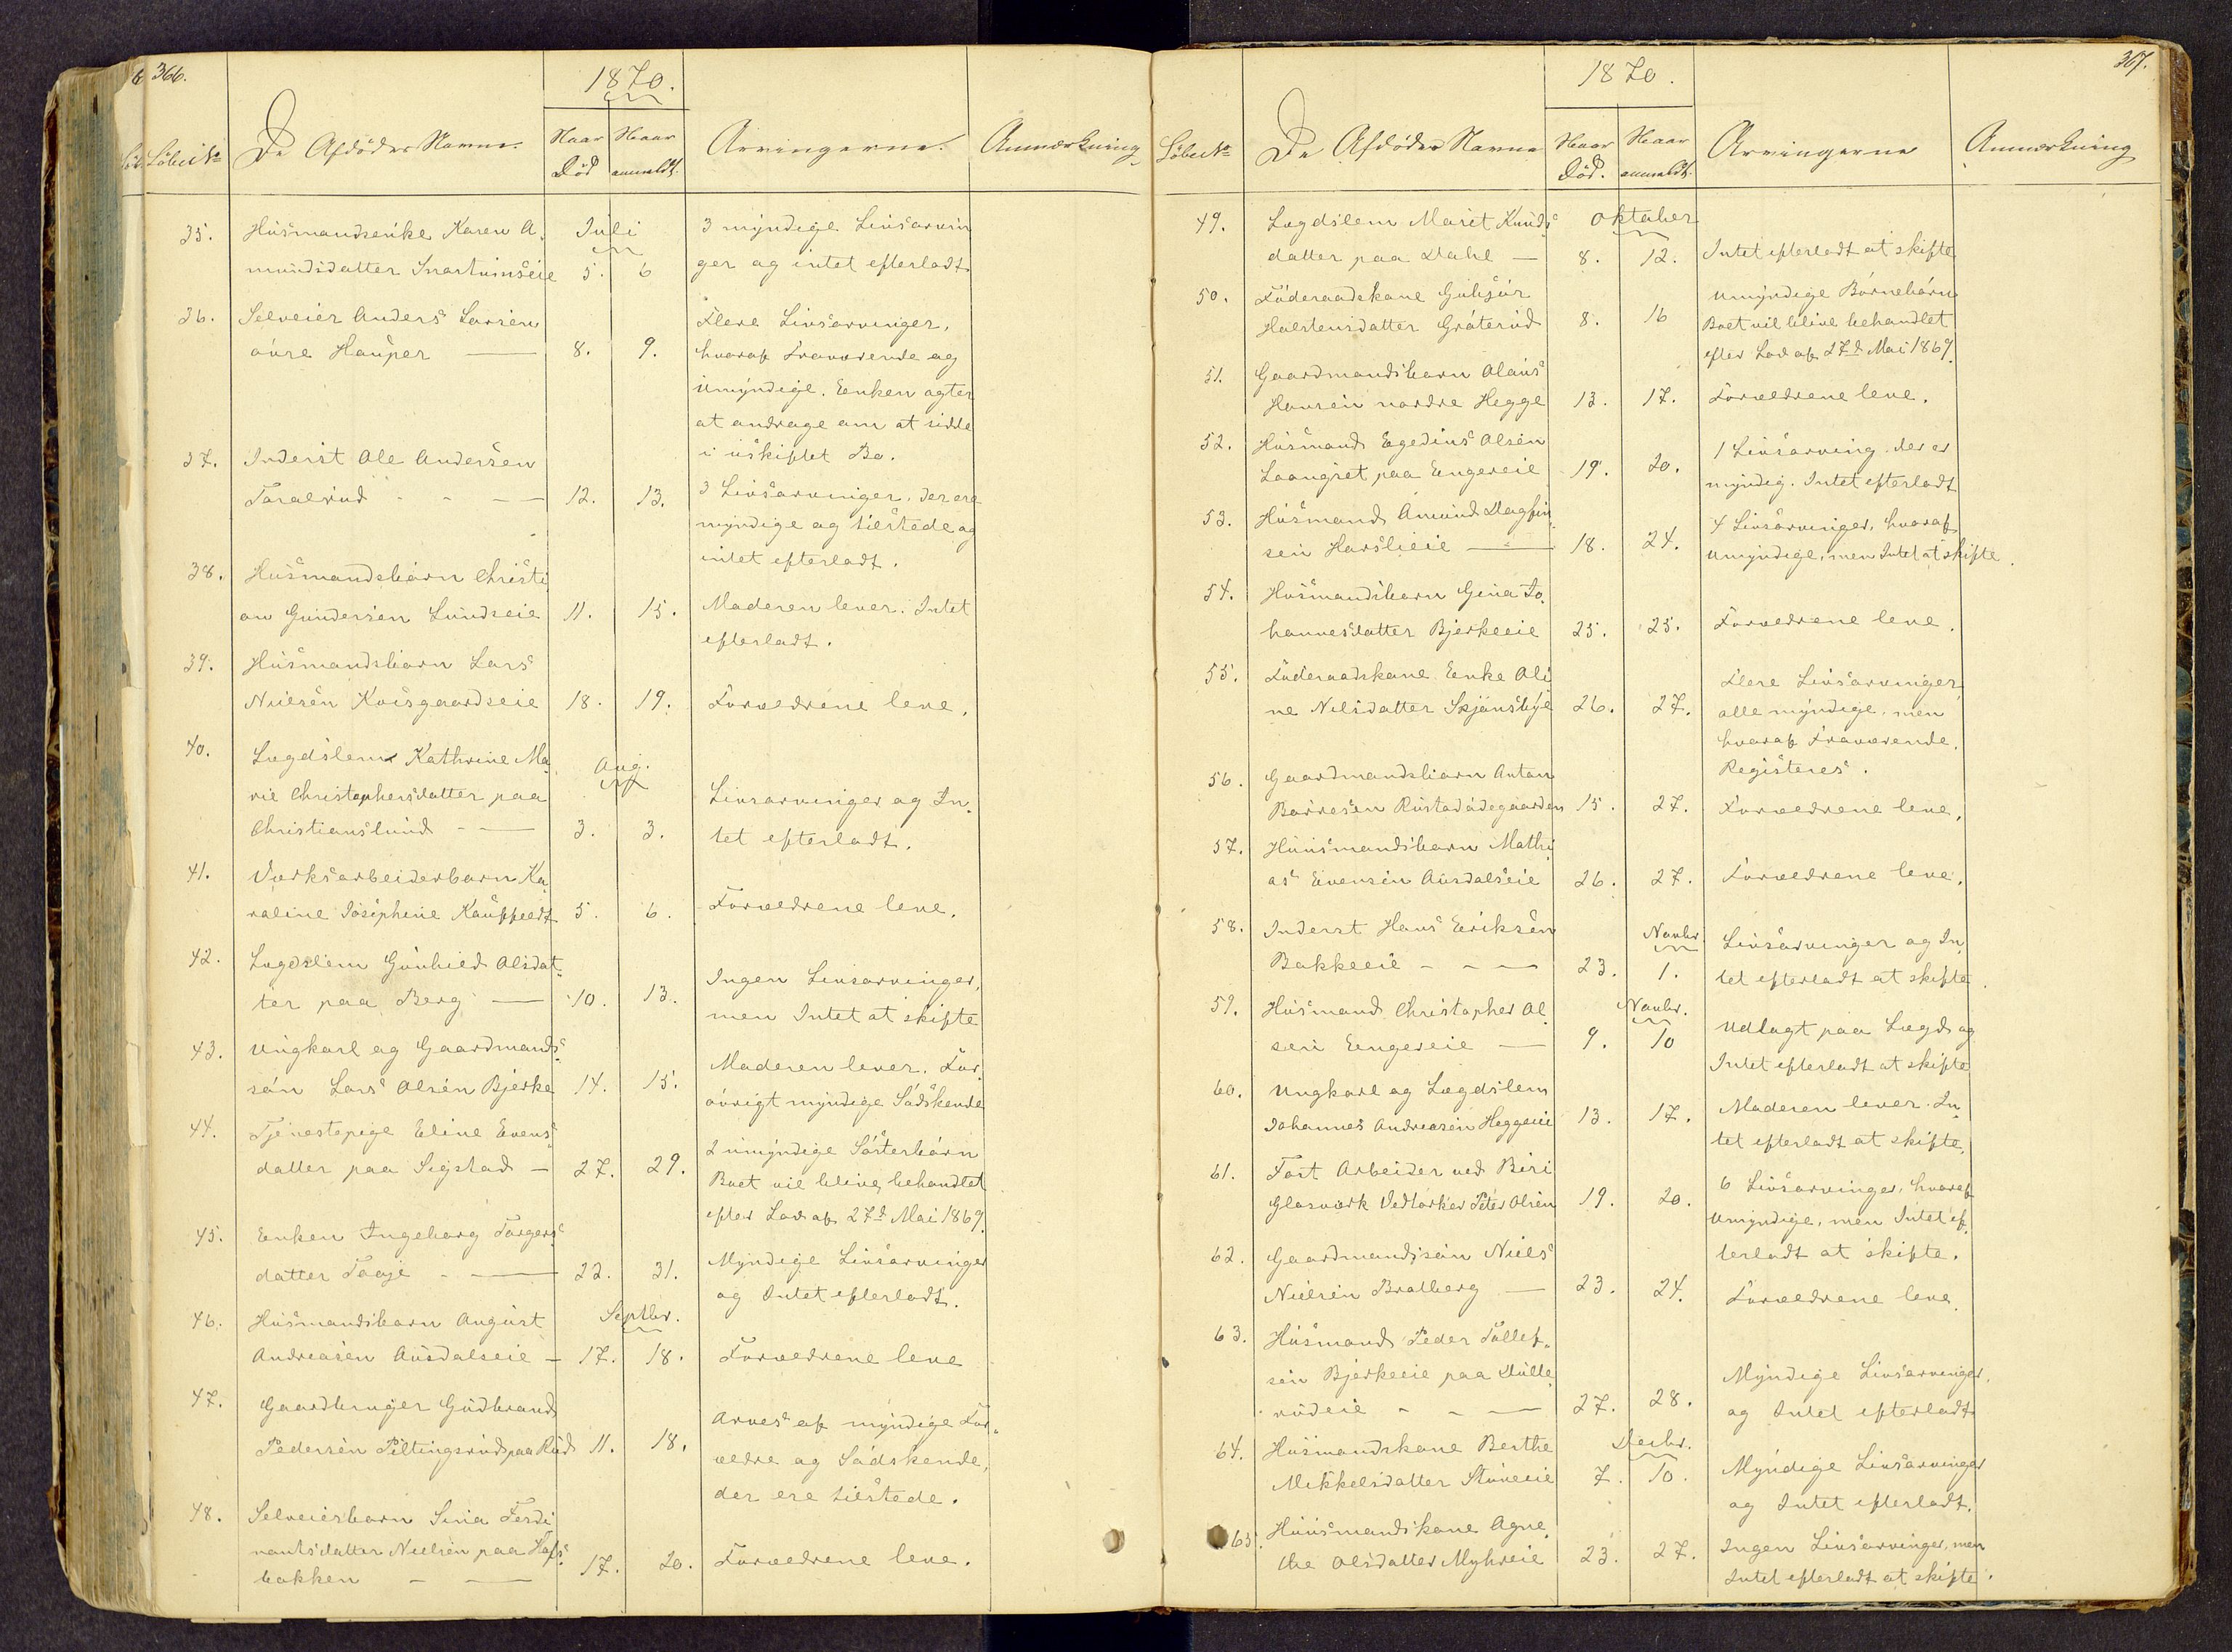 366.
1870.
Löbe No
De Afdödes Navne.
Naar Död
Naar anmeldt.
Arvingerne.
Anmærkning
35. Husmandsenke Karen A.
Juli
3 myndige Livsarvin
mundsdatter Snartumseie 5. 6
ger og intet efterladt
36. Selveier Anders Larsen
Flere Livsarvinger,
övre Hausper — 8. 9.
hvoraf Fraværende og
Umyndige. Enken agter
at andrage om at sidde
i uskiftet Bo.
37. Inderst Ole Andersen
Taralrud - - — 12. 13.
3 Livsarvinger, der ere
myndige og tilstede og
intet efterladt.
38. Husmandsbarn Christi
an Gundersen Lundseie 11. 15.
Moderen lever. Intet
efterladt.
39. Husmandsbarn Lars
Nielsen Kvisgaardseie 18. 19.
Forældrene leve.
40. Lægdslem Kathrine Ma
Aug.
rie Christophersdatter paa
Livsarvinger og In
Christianslund - — 3. 3.
tet efterladt.
41. Værksarbeiderbarn Ka
raline Josephine Kauffeldt 5. 6.
Forældrene leve.
42. Lægdslem Gunhild Olsdat
ter paa Berg — 10. 13.
Ingen Livsarvinger,
men Intet at skifte
43. Ungkarl og Gaardmands
sön Lars Olsen Bjerke 14. 15.
Moderen lever. For
övrigt myndige Södskende
44. Tjenestepige Eline Evens
datter paa Sigstad — 27. 29.
2 umyndige Sösterbörn
Boet vil blive behandlet
efter Lov af 27d Mai 1869.
45. Enken Ingeborg Torgers
datter Taaje - — 22. 31.
Myndige Livsarvinger
og Intet efterladt.
46. Husmandsbarn August
Septbr.
Andreasen Ausdalseie — 17. 18.
Forældrene leve
47. Gaardbruger Gudbrand
Pedersen Piltingsrud paa Rud 11. 18.
Arves af myndige For
ældre og Södskende,
der ere tilstede.
48. Selveierbarn Sina Ferdi
nantsdatter Nielsen paa Hofs
bakken - — 17. 20.
Forældrene leve.
367.
1870.
Löbe No
De Afdödes Navne
Naar Död.
Naar anmeldt.
Arvingerne
Anmærkning
49. Lægdslem Marit Knuds
Oktober
datter paa Dahl — 8. 12.
Intet efterladt at skifte
50. Föderaadskone Guhjör
Umyndige Börnebörn
Halstensdatter Gröterud 8. 16
Boet vil blive behandlet
efter Lov af 27d Mai 1869.
51. Gaardmandsbarn Olaus
Hansen nordre Hegge 13. 17.
Forældrene leve.
52. Husmand Egedius Olsen
1 Livsarving der er
Laangret paa Engereie 19. 20.
myndig. Intet efterladt
53. Husmand Amund Dagfin
4 Livsarvinger, hvoraf
sen Harslieie — 18. 24.
Umyndige, men Intet at skifte.
54. Husmandsbarn Gina Jo
hannesdatter Bjerkeeie 25. 25.
Forældrene leve.
55. Föderaadskone Enke Oli
Flere Livsarvinger,
ne Nilsdatter Skjønsbye 26. 27.
alle myndige, men
hvoraf Fraværende.
Registeres.
56. Gaardmandsbarn Anton
Borresen Rustadödegaarden 15. 27.
Forældrene leve.
57. Huusmandsbarn Mathi
as Evensen Ausdalseie 26. 27.
Forældrene leve.
58. Inderst Hans Eriksen
Novbr.
Livsarvinger og In
Bakkeeie - - — 23. 1.
tet efterladt at skifte.
59. Husmand Christopher Ol
Novbr.
Udlagt paa Lægd og
sen Engereie — 9. 10
Intet efterladt at skifte
60. Ungkarl og Lægdslem
Johannes Andreasen Heggeeie 13. 17.
Moderen lever. In
tet efterladt at skifte.
61. Fast Arbeider ved Biri
6 Livsarvinger, hvoraf
Glasværk Vedtørker Peter Olsen 19. 20.
Umyndige, men Intet ef
terladt at skifte.
62. Gaardmandssön Niels
Nielsen Bratberg — 23. 24.
Forældrene leve.
63. Husmand Peder Tollef
sen Bjerkeeie paa Dulle
Myndige Livsarvinger,
rudeie - - — 27. 28.
og Intet efterladt
64. Husmandskone Berthe
Decbr.
Mikkelsdatter Stuneeie 7. 10.
Myndige Livsarvinger
og Intet efterladt.
65. Huusmandskone Agne
the Olsdatter Myhreie 23. 27.
Ingen Livsarvinger, men
Intet efterladt at skifte.